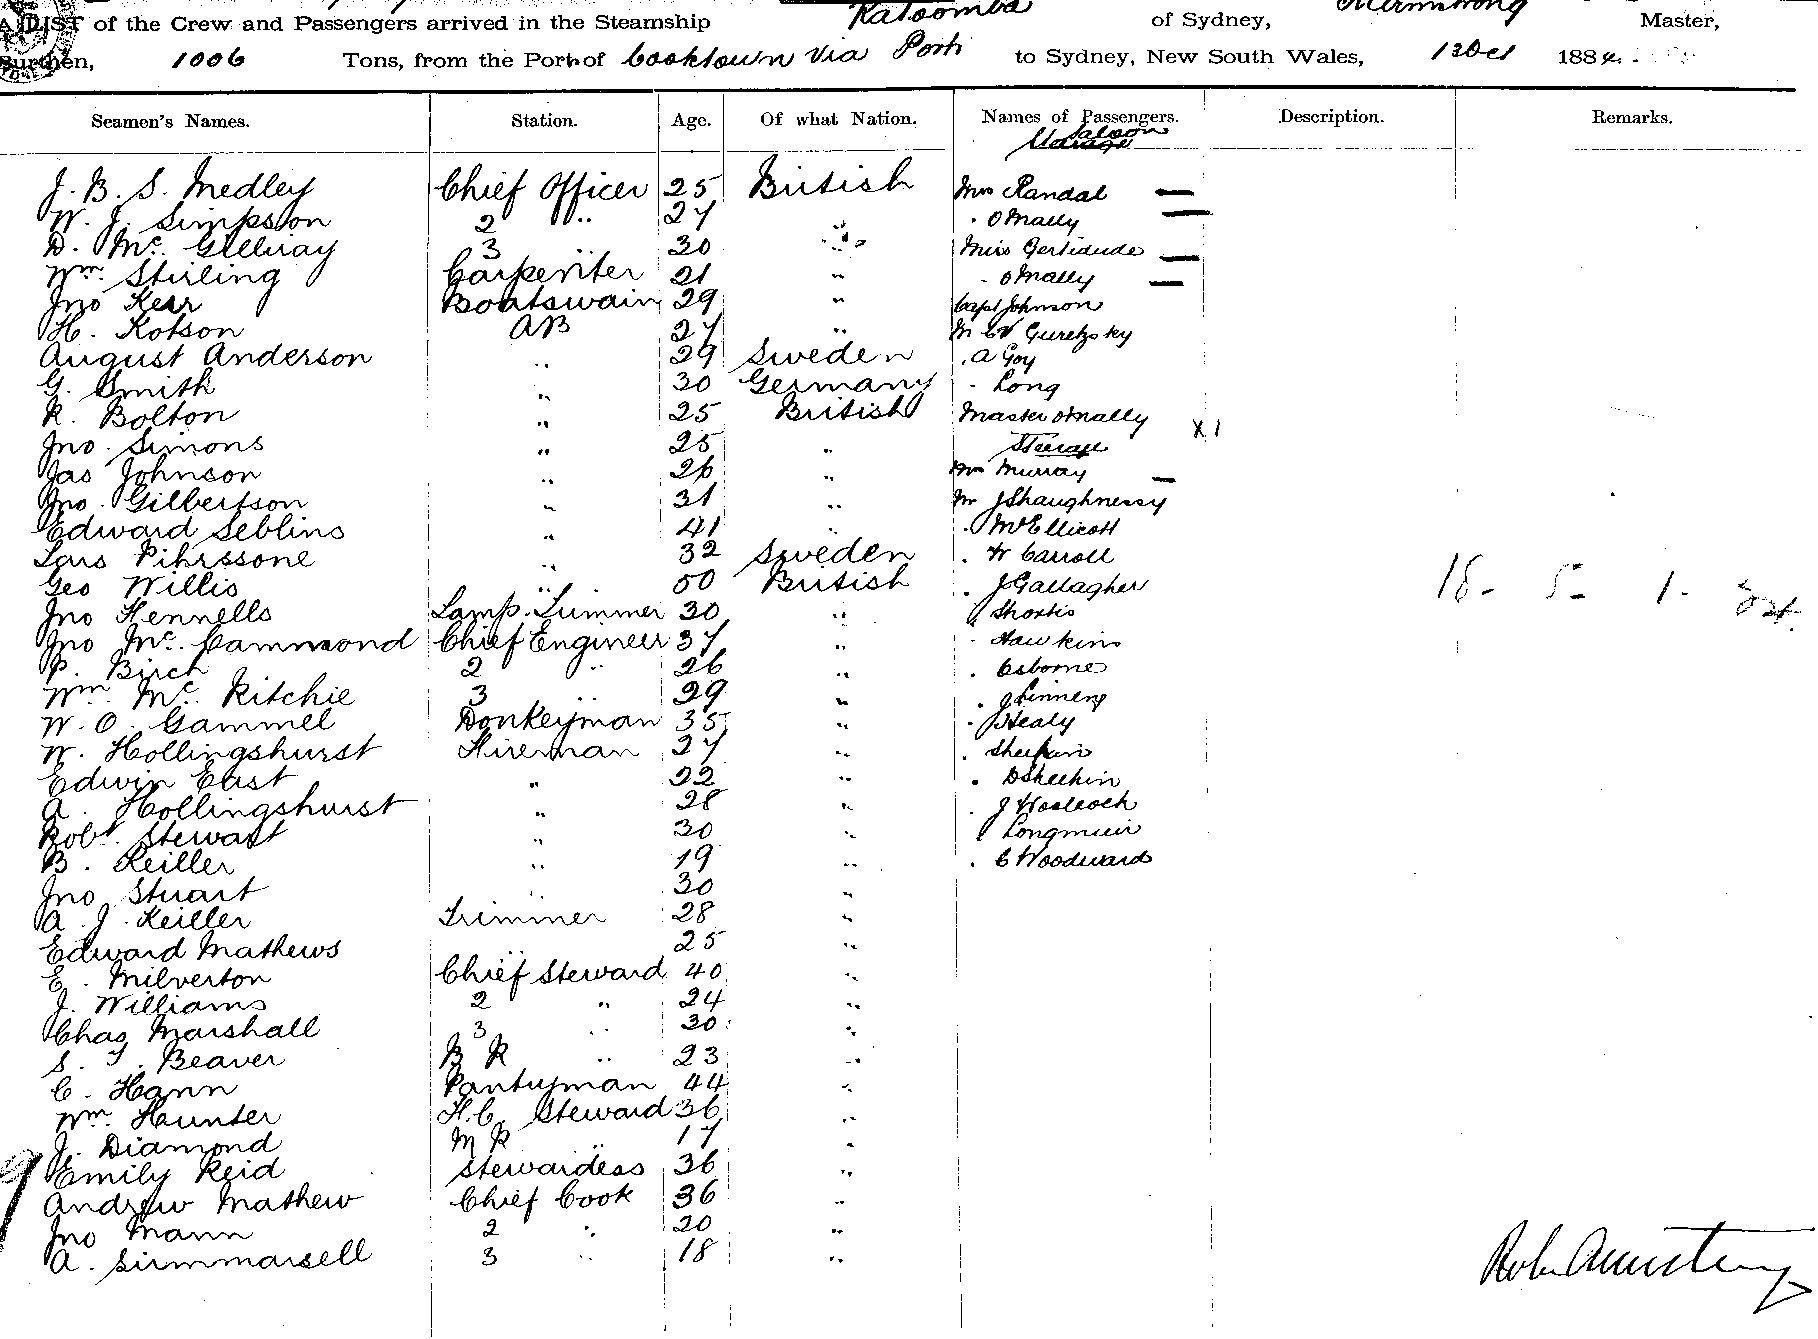 A LIST of the Crew and Passengers arrived in the Steamship Katoomba of Sydney, Armstrong Master,
Burthen, 1006 Tons, from the Port of Cooktown via Ports to Sydney, New South Wales, 1884.
Seamen's Names. Station. Age. Of what Nation. Names of Passengers. Description. Remarks.
Saloon
J. B. S. Medley Chief Officer 25 British Mrs Randal —
W. J. Simpson 2 " 27 " " O'Mally —
D. Mc. Gillivray 3 " 30 " Miss Gertidude —
Wm. Stirling Carpenter 21 " " O'Mally —
Jno Kerr Boatswain 29 " Capt Johnson
H. Kotson AB 27 " Mr Guretzsky
August Anderson " 29 Sweden " A Goy
G. Smith " 30 Germany " Long
R. Bolton " 25 British Master O'Mally X 1
Jno. Simons " 25 " Steerage
Jas Johnson " 26 " Mrs Murray —
Jno. Gilbertson " 31 " Mr J Shaughnessy
Edward Seblins " 41 " " McEllicott
Lars Pihrssone " 32 Sweden " W Carroll
Geo Willis " 50 British " J Gallagher 18 - 5 - 1 -
Jno Hennells Lamp. Trimmer 30 " " Shortis
Jno Mc. Cammond Chief Engineer 37 " " Hawkins
P. Birch 2 " 26 " " Osborne
Wm. Mc. Ritchie 3 " 29 " "
W. O. Gammel Donkeyman 35 " " J Healy
W. Hollingshurst Fireman 27 " " Sheehin
Edwin East " 22 " " D Sheehin
A. Hollingshurst " 28 " " J Woolcock
Robt. Stewart " 30 " " Longmuir
B. Keiller " 19 " " C Woodward
Jno Stuart " 30 "
A. J. Keiller Trimmer 28 "
Edward Mathews " 25 "
E. Milverton Chief Steward 40 "
J. Williams 2 " 24 "
Chas Marshall 3 " 30 "
S. J. Beaver B R " 23 "
C. Hann Pantryman 44 "
Wm. Hunter F.C. Steward 36 "
J. Diamond M R " 17 "
Emily Reid Stewardess 36 "
Andrew Mathew Chief Cook 36 "
Jno Mann 2 " 20 "
A. Sirmmarsell 3 " 18 "
Robt Armstrong